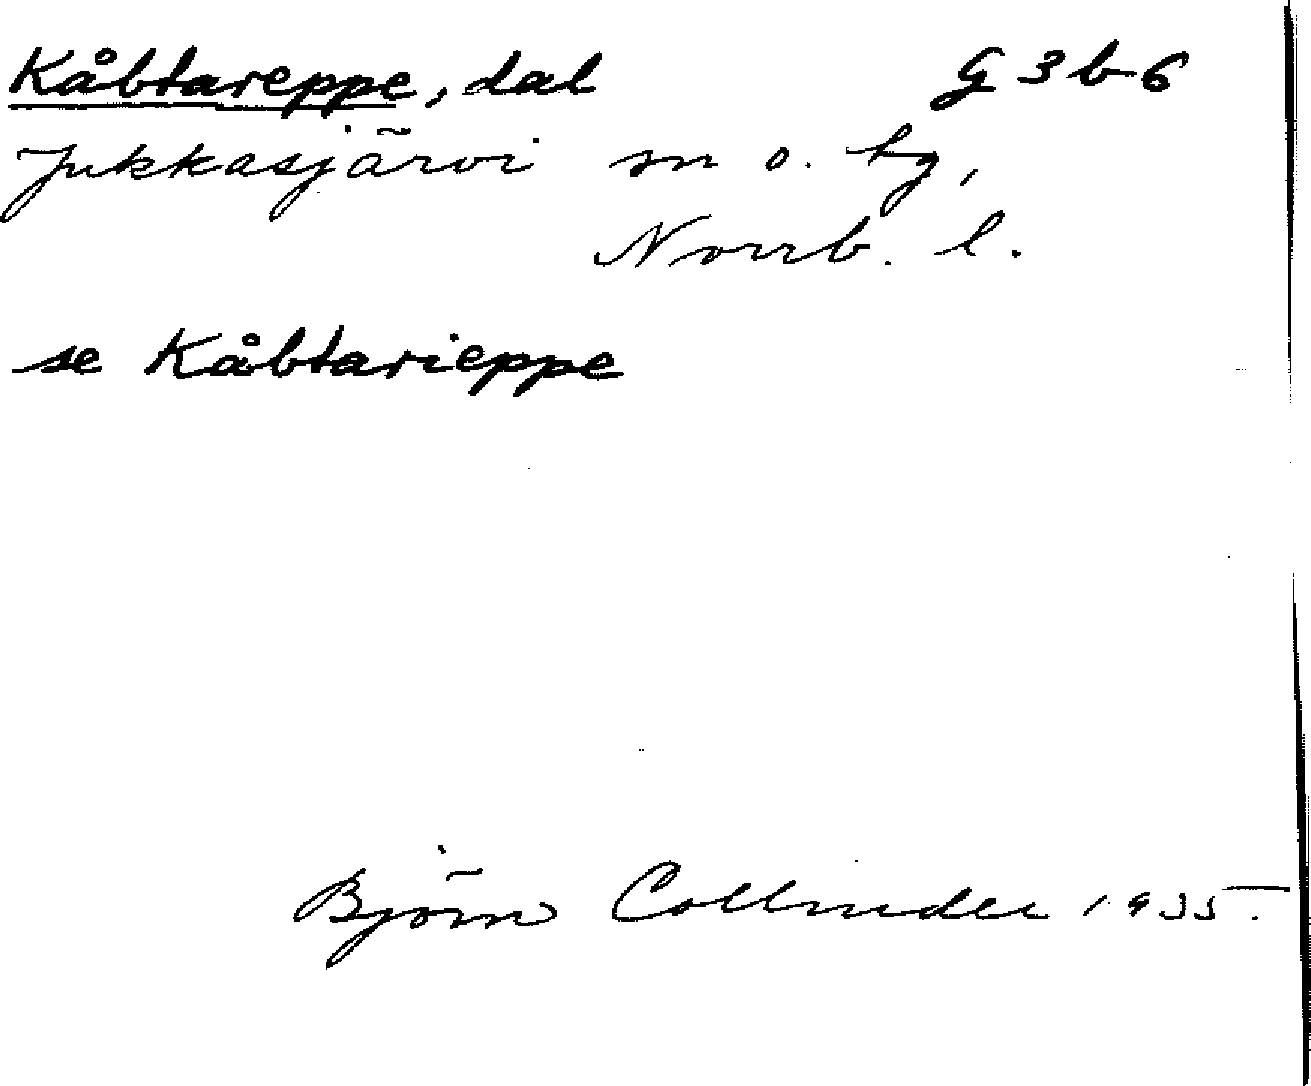 Kåbtareppe, dal G 3 b 6
Jukkasjärvi sn o. tg,
Norrb. l.
se Kåbtarieppe
Björn Collinder 1935.